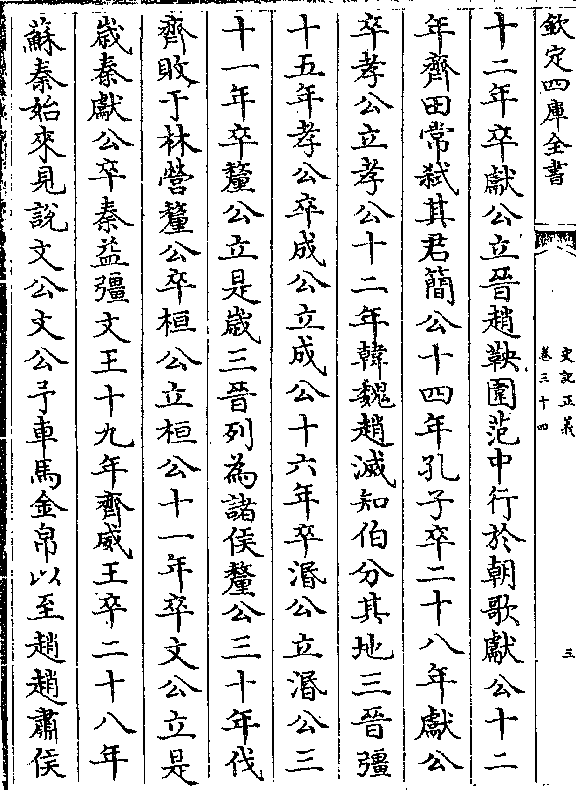 欽定四庫全書
史記正義
卷三十四
三
十二年卒獻公立晉趙鞅圍范中行於朝歌獻公十二
年齊田常弑其君簡公十四年孔子卒二十八年獻公
卒孝公立孝公十二年韓魏趙滅知伯分其地三晉彊
十五年孝公卒成公立成公十六年卒湣公立湣公三
十一年卒釐公立是歲三晉列為諸侯釐公三十年伐
齊敗于林營釐公卒桓公立桓公十一年卒文公立是
歲秦獻公卒秦益彊文王十九年齊威王卒二十八年
蘇秦始來見說文公文公予車馬金帛以至趙趙肅侯